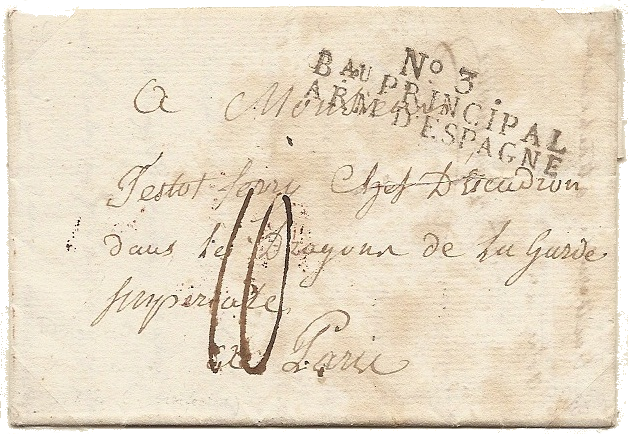 No 3.
BAU PRINCIPAL
ARM D'ESPAGNE
A Monsieur
Testot ferri Chef D'Escadron
dans les Dragons de La Garde
imperiale
10
a Paris